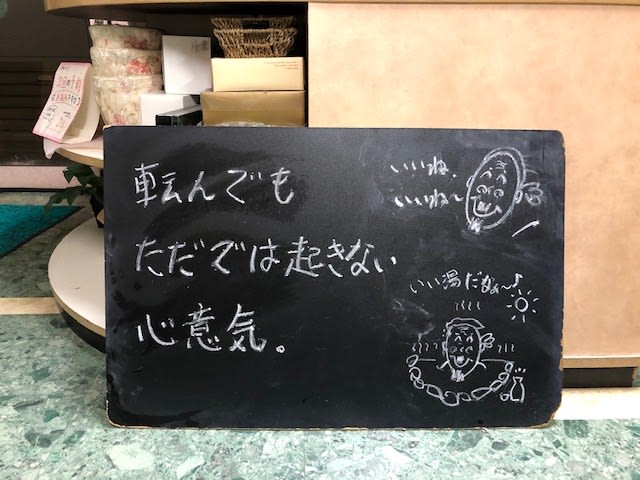 転んでも
ただでは起きない
心意気。
いいね、
いいね〜
いい湯だなぁ〜♪